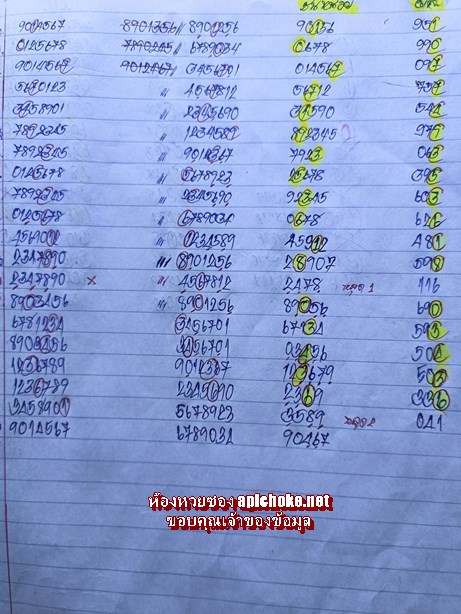 9014567 8901356 // 8901256 90156 951
0145678 7890245 // 6789034 0678 990
9014567 9012767 // 3456701 014567 097
5670123 /// 4567812 56712
3458901 /// 2345690 34590
7892345 /// 1234589 892345 975
7892345 /// 9012367 7923
0145678 /// 5678923 25678 395
7892345 /// 2345690 92345 603
0145678 /// 6789034 0678
4569012 /// 1234589 45912 481
2347890 /// 8901256 28907 598
2347890 × /// 4567812 2478 หลุด 1 116
8903456 /// 8901256 89056 690
6781234 3456701 67234 593
8903456 3456701 03456 504
1236789 9012367 123679 503
1236789 2345690 2369 336
3458901 5678923 3589 หลุด 2 041
9014567 6789034 90467
ห้องหวยซอง apichoke.net
ขอบคุณเจ้าของข้อมูล